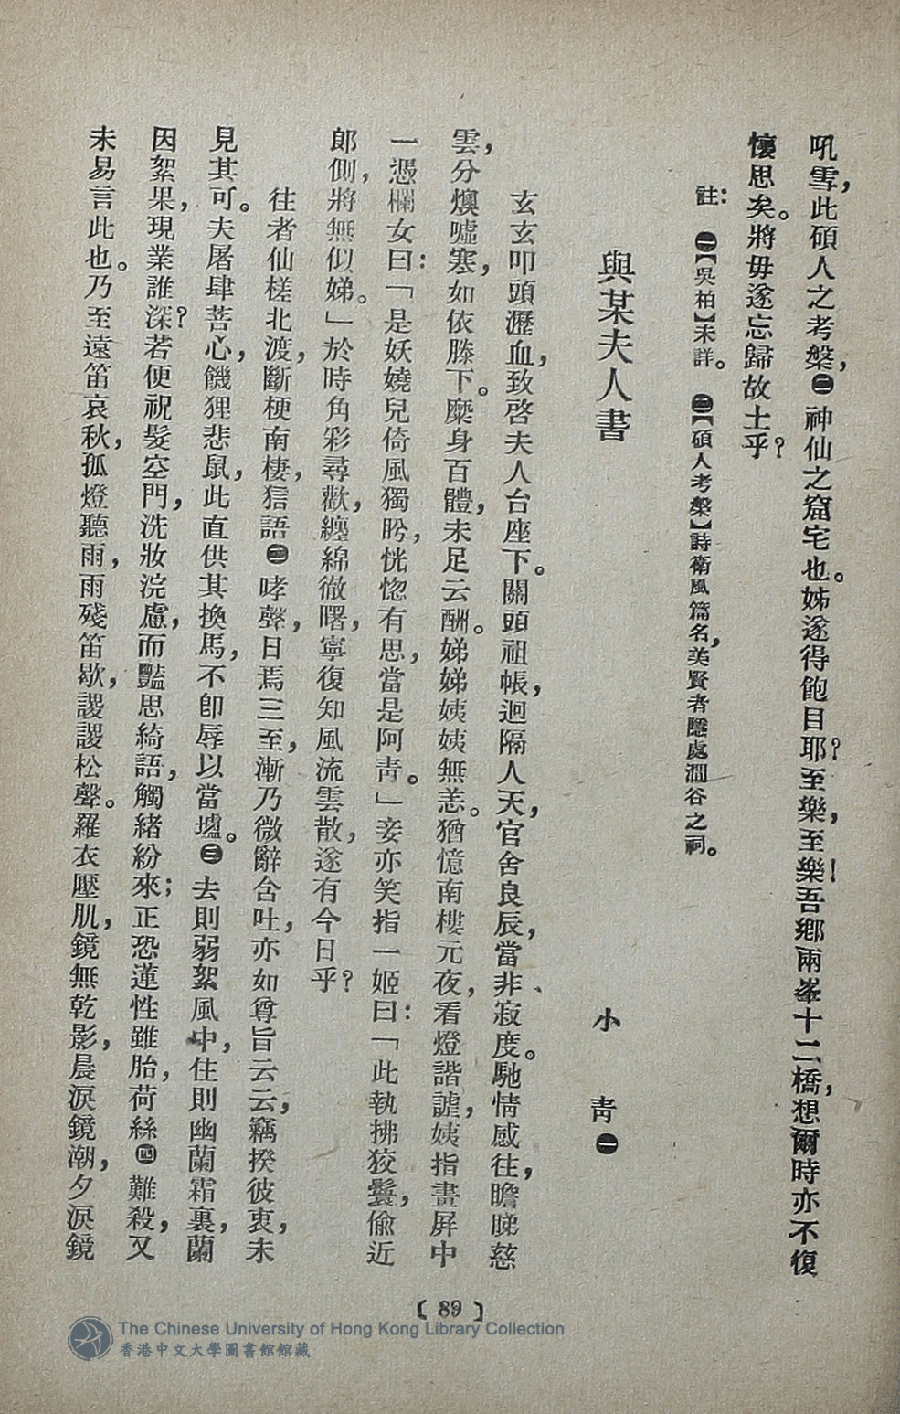 吼雪，此碩人之考槃，㊁神仙之窟宅也。姊遂得飽目耶？至樂，至樂！吾鄉兩峯十二橋，想爾時亦不復
懷思矣。將毋遂忘歸故土乎？
註：㊀【吳柏】未詳。㊁【碩人考槃】詩衛風篇名，美賢者隱處澗谷之詞。
與某夫人書
小青㊀
玄玄叩頭瀝血，致啓夫人台座下。關頭祖帳，迥隔人天，官舍良辰，當非寂度。馳情感往，瞻睇慈
雲，分燠噓寒，如依膝下。糜身百體，未足云酬。娣娣姨姨無恙。猶憶南樓元夜，看燈諧謔，姨指畫屏中
一憑欄女曰：「是妖嬈兒倚風獨盻，恍惚有思，當是阿青。」妾亦笑指一姬曰：「此執拂狡鬟，偷近
郎側，將無似娣。」於時角彩尋歡，纏綿徹曙，寧復知風流雲散，遂有今日乎？
往者仙槎北渡，斷梗南棲，狺語㊁哮聲，日焉三至，漸乃微辭含吐，亦如尊旨云云，竊揆彼衷，未
見其可。夫屠肆菩心，饑狸悲鼠，此直供其換馬，不卽辱以當壚。㊂去則弱絮風中，住則幽蘭霜裏，蘭
因絮果，現業誰深？若便祝髮空門，洗妝浣慮，而豔思綺語，觸緒紛來；正恐蓮性雖胎，荷絲㊃難殺，又
未易言此也。乃至遠笛哀秋，孤燈聽雨，雨殘笛歇，謖謖松聲。羅衣壓肌，鏡無乾影，晨淚鏡潮，夕淚鏡
〔89〕
The Chinese University of Hong Kong Library Collection
香港中文大學圖書館館藏